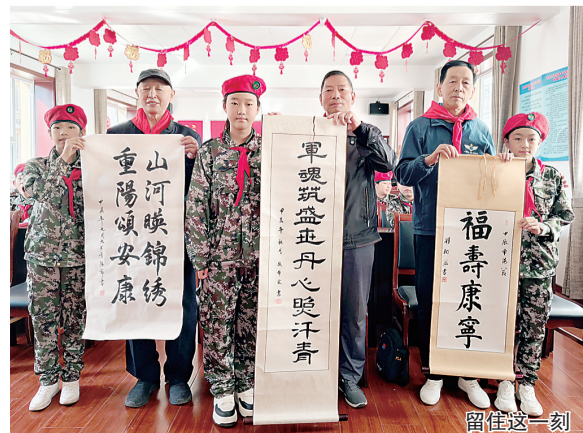 山河暎錦绣
重陽頌安康
軍魂筑盛世丹心照汗青
福壽康寧
留住这一刻